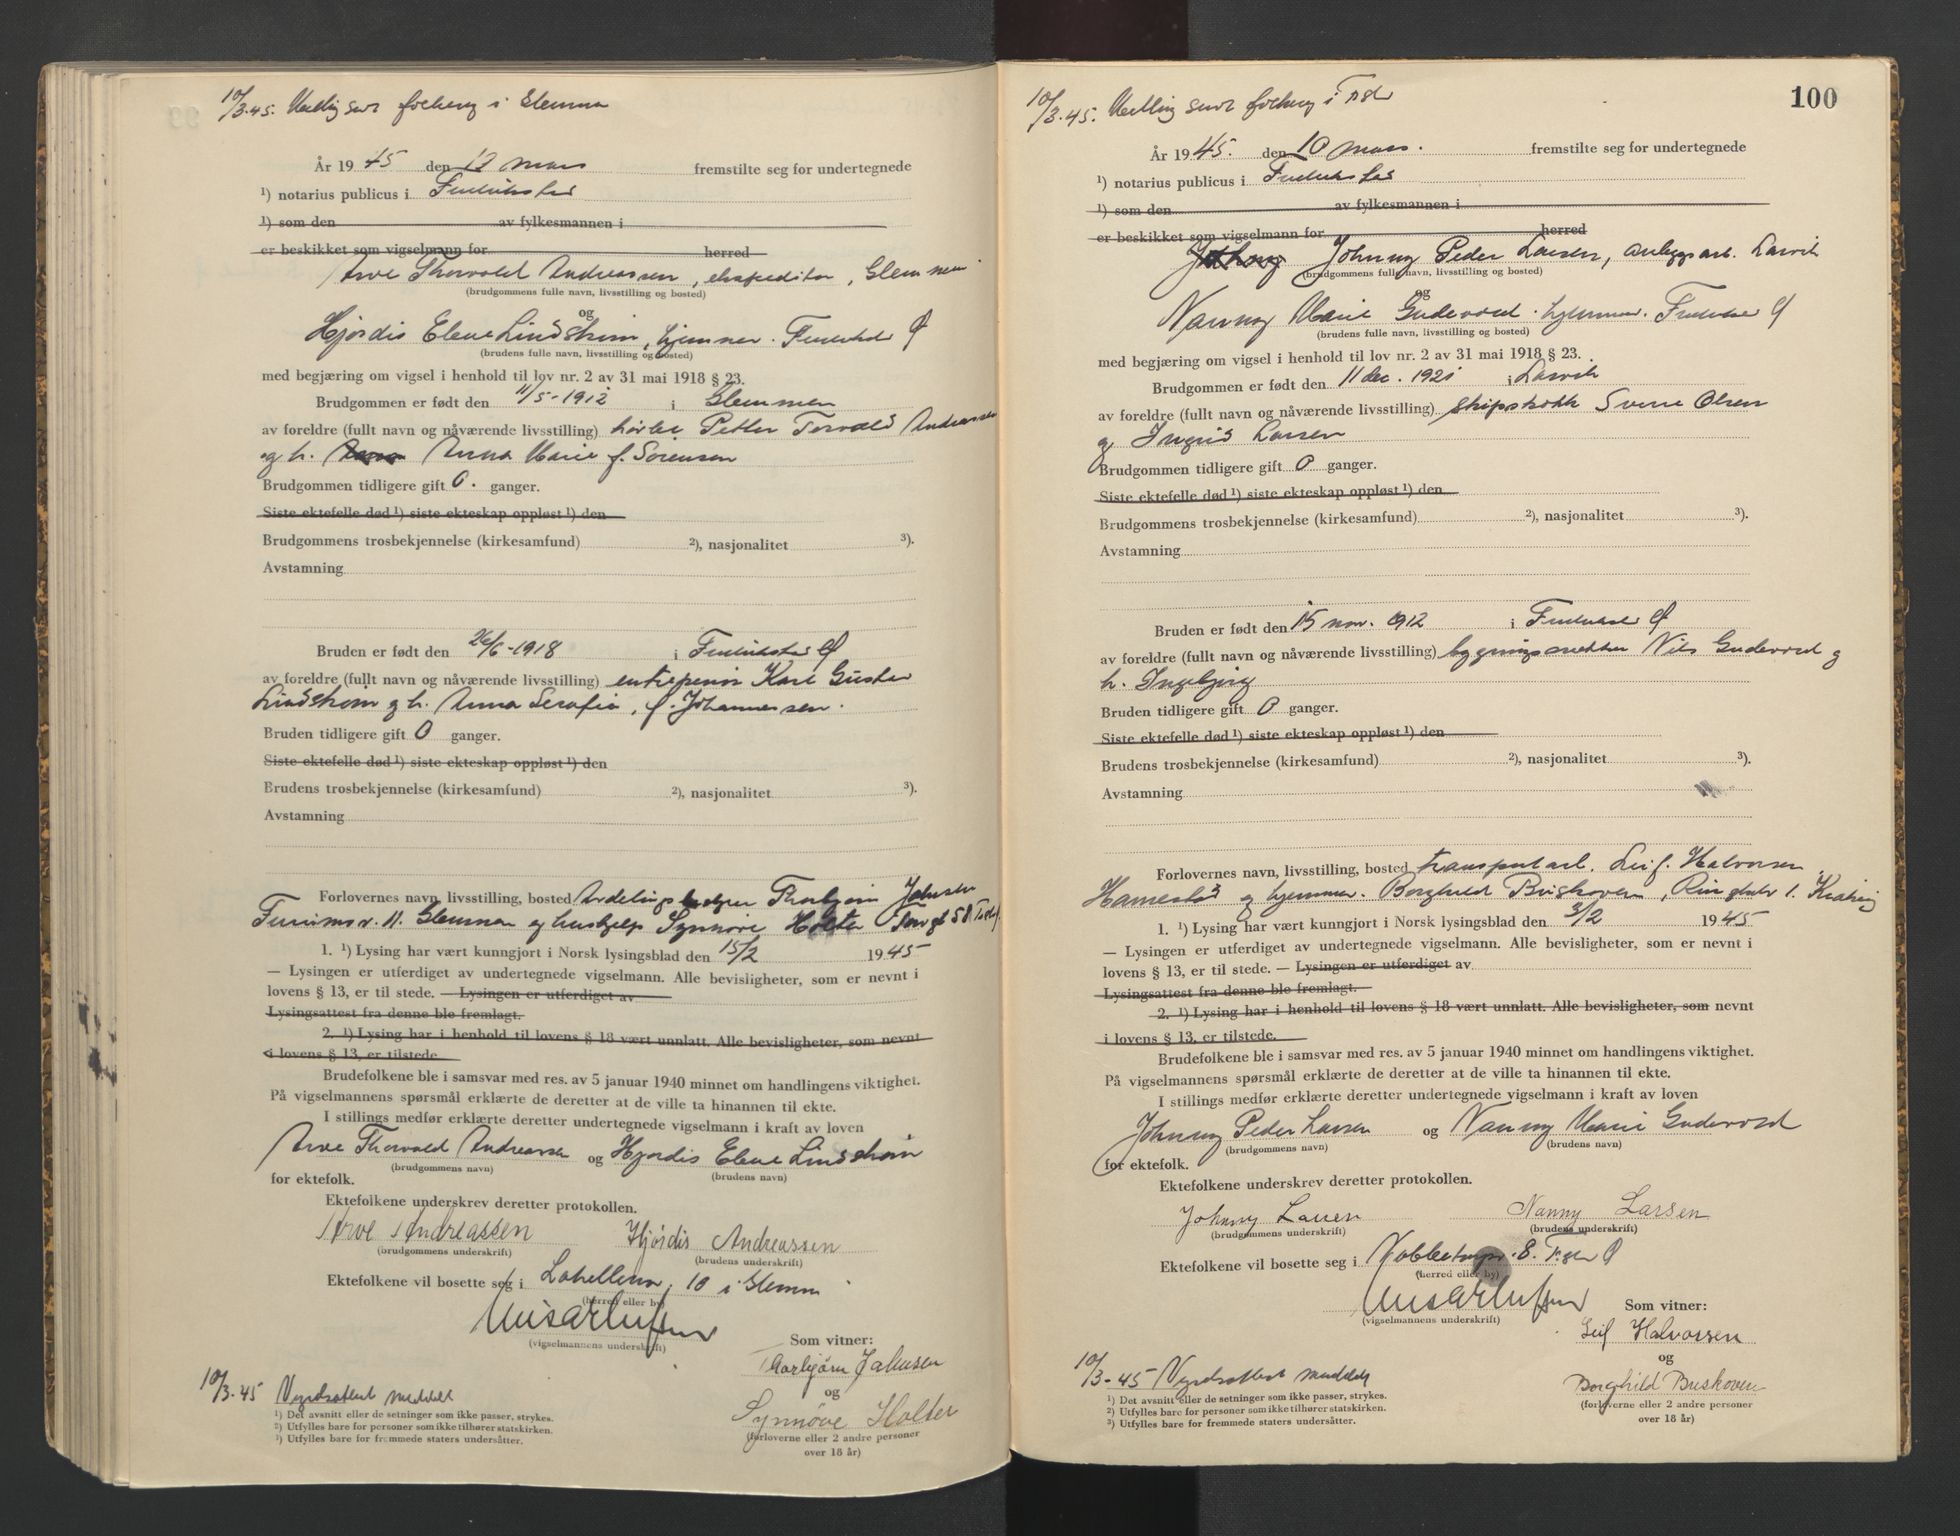 10/3.45. Melding sent folkereg i Glemmen
År 1945 den 10 mars fremstilte seg for undertegnede
¹) notarius publicus i Fredrikstad
¹) som den av fylkesmannen i
er beskikket som vigselmann for herred
Arve Thorvald Andreassen, ekspeditør, Glemmen
(brudgommens fulle navn, livsstilling og bosted)
og
Hjørdis Elene Lindstrøm, hjemmev. Fredrikstad Ø
(brudens fulle navn, livsstilling og bosted)
med begjæring om vigsel i henhold til lov nr. 2 av 31 mai 1918 § 23.
Brudgommen er født den 11/5-1912 i Glemmen
av foreldre (fullt navn og nåværende livsstilling) Petter Torvald Andreassen
og h. Anna Marie f. Sørensen
Brudgommen tidligere gift 0. ganger.
Siste ektefelle død ¹) siste ekteskap oppløst ¹) den
Brudgommens trosbekjennelse (kirkesamfund) ²), nasjonalitet ³).
Avstamning
Bruden er født den 26/6-1918 i Fredrikstad Ø
av foreldre (fullt navn og nåværende livsstilling) entreprenør Karl Gustav
Lindstrøm og h. Anna Serafia, f. Johannessen.
Bruden tidligere gift 0 ganger.
Siste ektefelle død ¹) siste ekteskap oppløst ¹) den
Brudens trosbekjennelse (kirkesamfund) ²), nasjonalitet ³).
Avstamning
Forlovernes navn, livsstilling, bosted Thorbjørn Johnsen
11. Glemmen og hushjelp Synnøve Holter
1. ¹) Lysing har vært kunngjort i Norsk lysingsblad den 15/2 1945
— Lysingen er utferdiget av undertegnede vigselmann. Alle bevisligheter, som er nevnt i
lovens § 13, er til stede. — Lysingen er utferdiget av
Lysingsattest fra denne ble fremlagt.
2. ¹) Lysing har i henhold til lovens § 18 vært unnlatt. Alle bevisligheter, som nevnt
i lovens § 13, er tilstede.
Brudefolkene ble i samsvar med res. av 5 januar 1940 minnet om handlingens viktighet.
På vigselmannens spørsmål erklærte de deretter at de ville ta hinannen til ekte.
I stillings medfør erklærte deretter undertegnede vigselmann i kraft av loven
Arve Thorvald Andreassen og Hjørdis Elene Lindstrøm
(brudgommens navn) (brudens navn)
for ektefolk.
Ektefolkene underskrev deretter protokollen.
Arve Andreassen Hjørdis Andreassen
(brudgommens underskrift) (brudens underskrift)
Ektefolkene vil bosette seg i 10 i Glemmen
(herred eller by)
(vigselmannens underskrift)
Som vitner:
Thorbjørn Johnsen
og
Synnøve Holter
(forloverne eller 2 andre personer
over 18 år)
10/3-45 Vigselsattest meddelt
¹) Det avsnitt eller de setninger som ikke passer, strykes.
²) Utfylles bare for personer som ikke tilhører statskirken.
³) Utfylles bare for fremmede staters undersåtter.
100
10/3.45. Melding sent folkereg i F.stad
År 1945. den 10 mars. fremstilte seg for undertegnede
¹) notarius publicus i Fredrikstad
¹) som den av fylkesmannen i
er beskikket som vigselmann for herred
Johnny Peder Larsen, anleggsarb. Larvik
(brudgommens fulle navn, livsstilling og bosted)
og
Nanny Marie Gudevold. hjemmev. Fredrikstad Ø
(brudens fulle navn, livsstilling og bosted)
med begjæring om vigsel i henhold til lov nr. 2 av 31 mai 1918 § 23.
Brudgommen er født den 11 dec. 1921 i Larvik
av foreldre (fullt navn og nåværende livsstilling) skipskokk Sverre Olsen
og Ingrid Larsen
Brudgommen tidligere gift 0 ganger.
Siste ektefelle død ¹) siste ekteskap oppløst ¹) den
Brudgommens trosbekjennelse (kirkesamfund) ²), nasjonalitet ³).
Avstamning
Bruden er født den 15 nov. 1912 i Fredrikstad Ø
av foreldre (fullt navn og nåværende livsstilling) bygningssnekker Nils Gudevold og
h. Ingebjørg
Bruden tidligere gift 0 ganger.
Siste ektefelle død ¹) siste ekteskap oppløst ¹) den
Brudens trosbekjennelse (kirkesamfund) ²), nasjonalitet ³).
Avstamning
Forlovernes navn, livsstilling, bosted transportarb. Leif Halvorsen
og hjemmev. Borghild Buskoven,
1. ¹) Lysing har vært kunngjort i Norsk lysingsblad den 3/2 1945
— Lysingen er utferdiget av undertegnede vigselmann. Alle bevisligheter, som er nevnt i
lovens § 13, er til stede. — Lysingen er utferdiget av
Lysingsattest fra denne ble fremlagt.
2. ¹) Lysing har i henhold til lovens § 18 vært unnlatt. Alle bevisligheter, som nevnt
i lovens § 13, er tilstede.
Brudefolkene ble i samsvar med res. av 5 januar 1940 minnet om handlingens viktighet.
På vigselmannens spørsmål erklærte de deretter at de ville ta hinannen til ekte.
I stillings medfør erklærte deretter undertegnede vigselmann i kraft av loven
Johnny Peder Larsen og Nanny Marie Gudevold
(brudgommens navn) (brudens navn)
for ektefolk.
Ektefolkene underskrev deretter protokollen.
Johnny Larsen Nanny Larsen
(brudgommens underskrift) (brudens underskrift)
Ektefolkene vil bosette seg i 8. F.stad Ø
(herred eller by)
(vigselmannens underskrift)
Som vitner:
Leif Halvorsen
og
Borghild Buskoven
(forloverne eller 2 andre personer
over 18 år)
10/3-45 Vigselsattest meddelt
¹) Det avsnitt eller de setninger som ikke passer, strykes.
²) Utfylles bare for personer som ikke tilhører statskirken.
³) Utfylles bare for fremmede staters undersåtter.